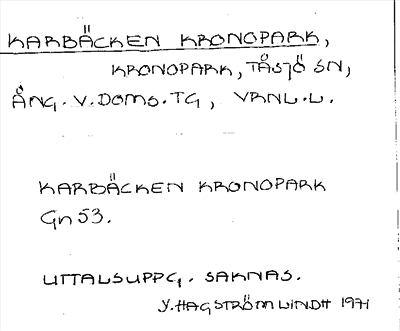 KARBÄCKEN KRONOPARK,
KRONOPARK, TÅSJÖ SN,
ÅNG. V. DOMS. TG, VRNL. L.
KARBÄCKEN KRONOPARK
Gn 53.
UTTALSUPPG. SAKNAS.
Y. HAGSTRÖM LINDH 1971